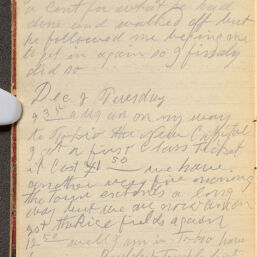 a cent for what he had
done and walked off but
he followed me begging me
to get in again so I finally
did so
Dec 9 Tuesday
9 35 am on my way
to Tokio the New Capital
I got a first class ticket
it cost $1 50 we have
another very fine morning
the town extends a long
way but we are now
get the Rice fields again
12 50 well I am in Tokio have